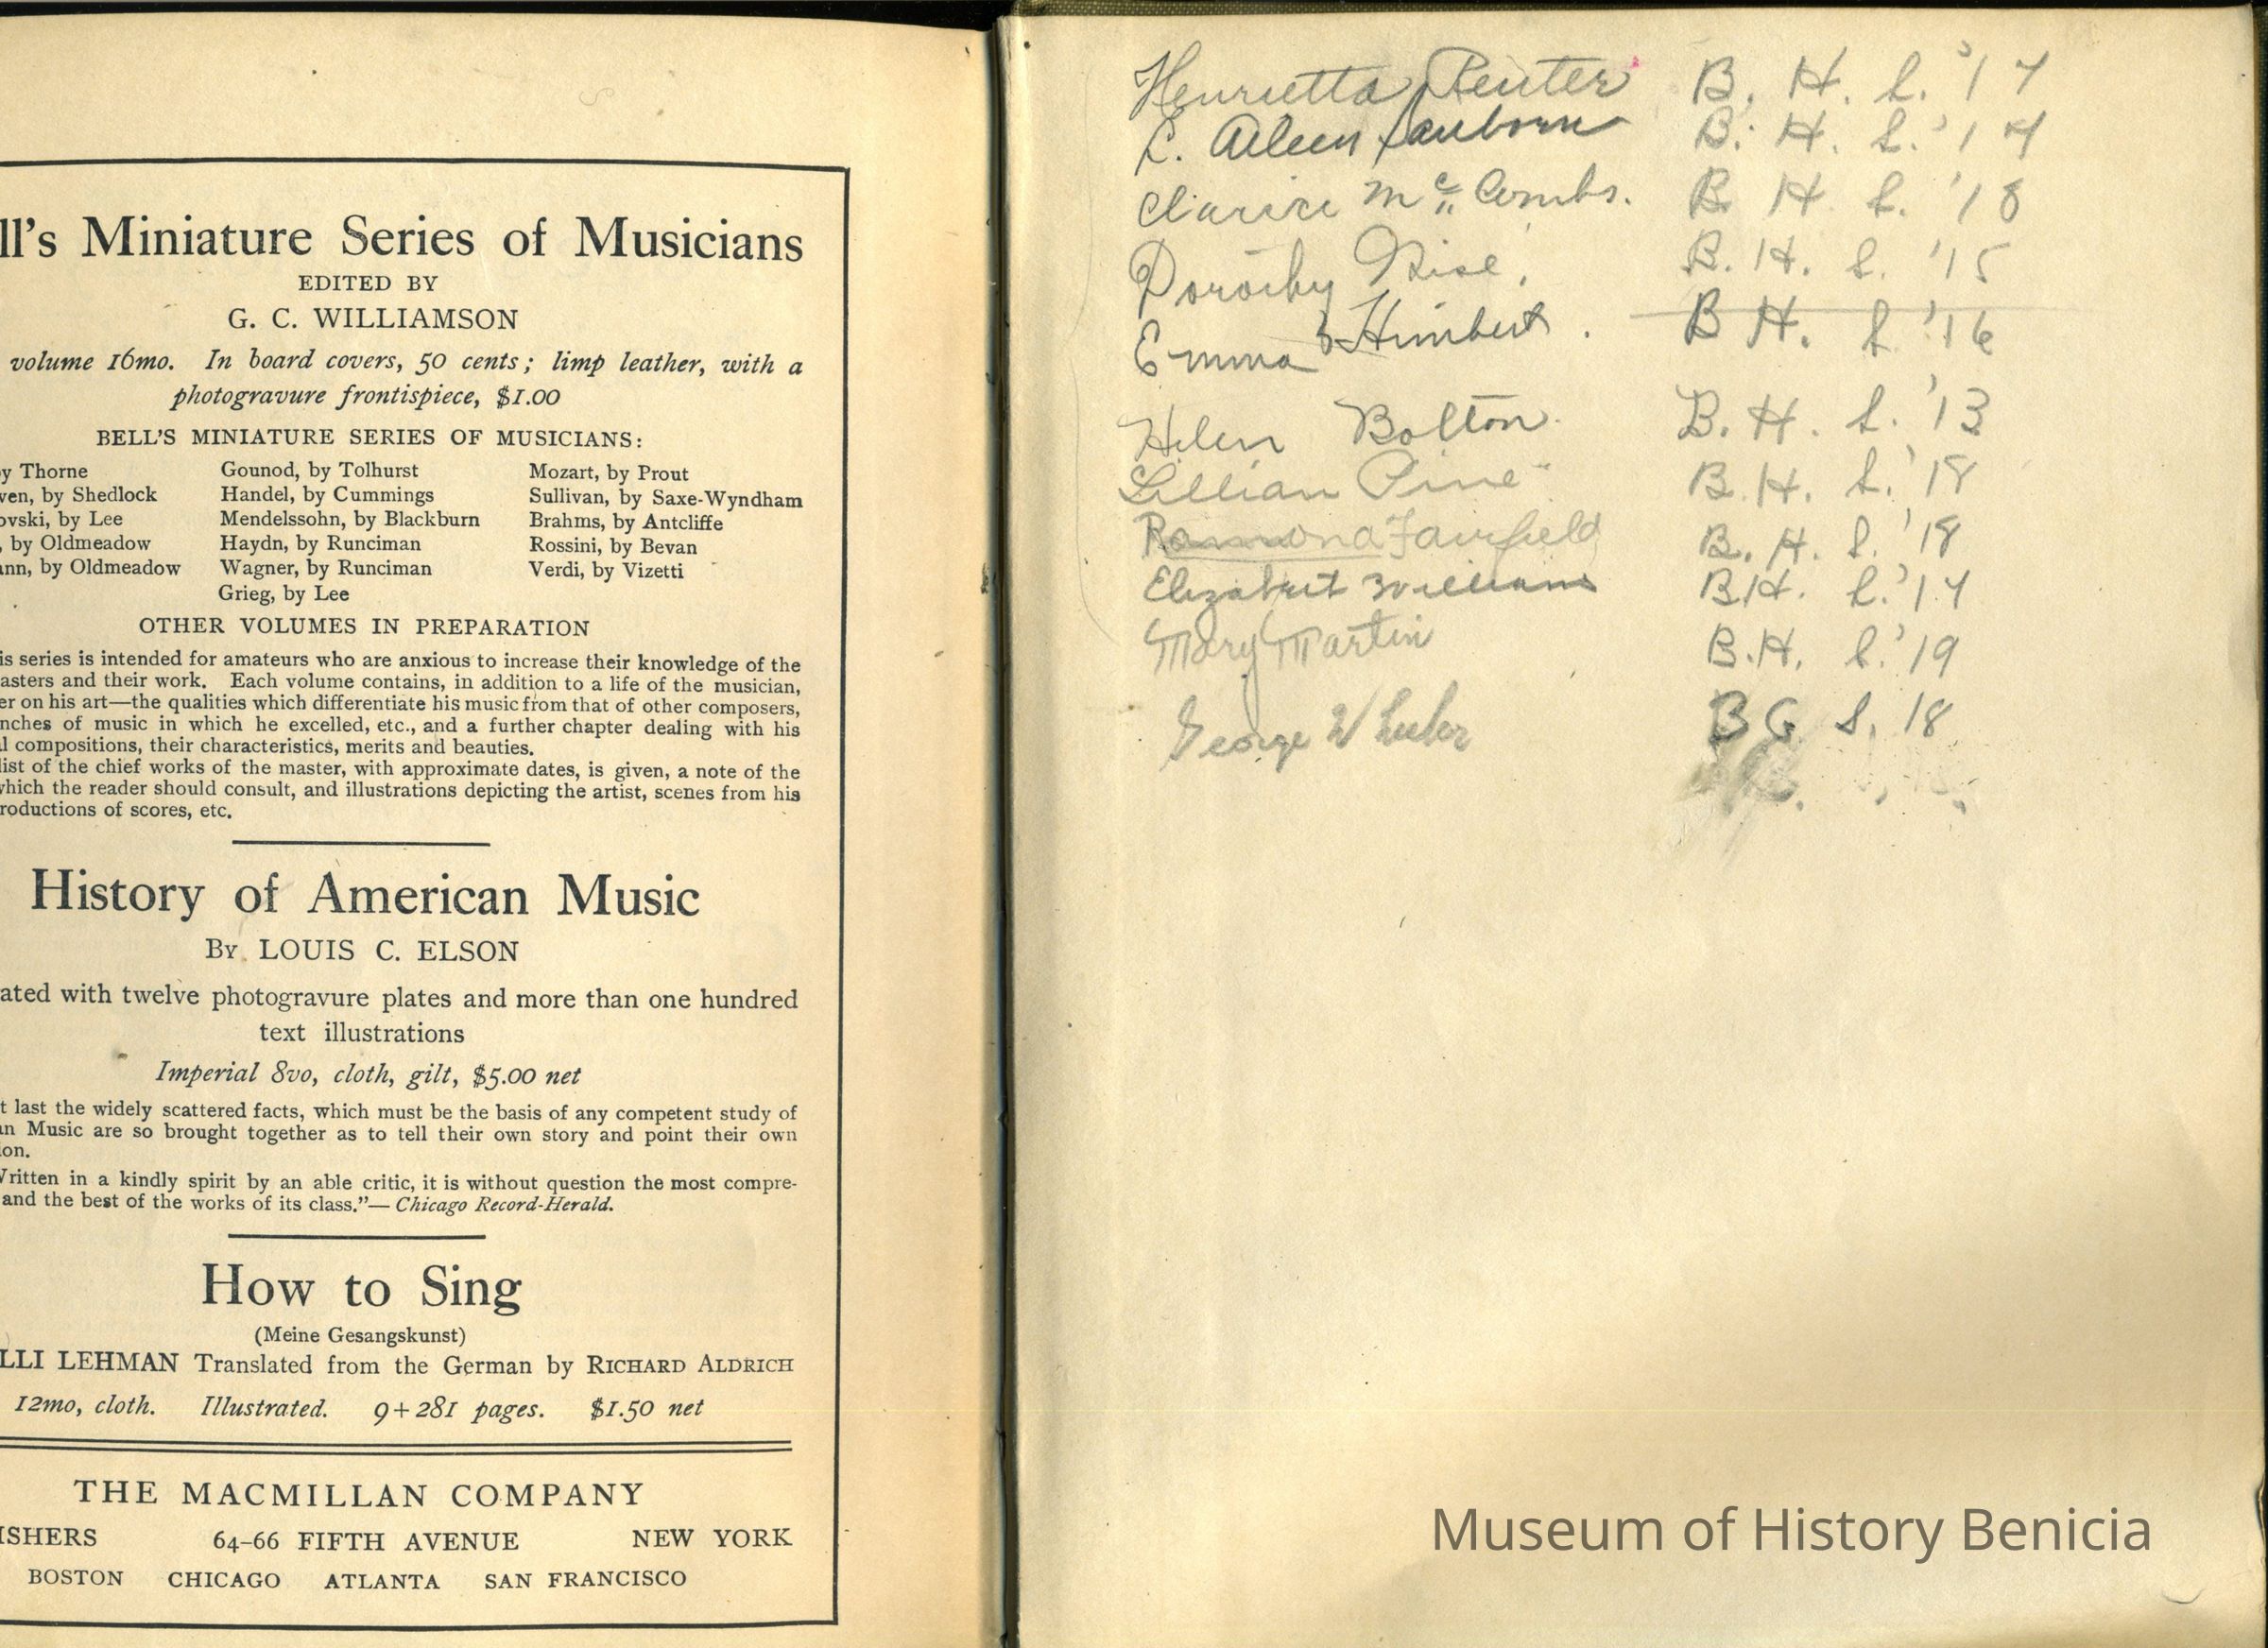 ll's Miniature Series of Musicians
EDITED BY
G. C. WILLIAMSON
volume 16mo. In board covers, 50 cents; limp leather, with a
photogravure frontispiece, $1.00
BELL'S MINIATURE SERIES OF MUSICIANS:
y Thorne Gounod, by Tolhurst Mozart, by Prout
ven, by Shedlock Handel, by Cummings Sullivan, by Saxe-Wyndham
ovski, by Lee Mendelssohn, by Blackburn Brahms, by Antcliffe
, by Oldmeadow Haydn, by Runciman Rossini, by Bevan
ann, by Oldmeadow Wagner, by Runciman Verdi, by Vizetti
Grieg, by Lee
OTHER VOLUMES IN PREPARATION
is series is intended for amateurs who are anxious to increase their knowledge of the
asters and their work. Each volume contains, in addition to a life of the musician,
er on his art—the qualities which differentiate his music from that of other composers,
nches of music in which he excelled, etc., and a further chapter dealing with his
l compositions, their characteristics, merits and beauties.
list of the chief works of the master, with approximate dates, is given, a note of the
which the reader should consult, and illustrations depicting the artist, scenes from his
roductions of scores, etc.
History of American Music
By LOUIS C. ELSON
ated with twelve photogravure plates and more than one hundred
text illustrations
Imperial 8vo, cloth, gilt, $5.00 net
t last the widely scattered facts, which must be the basis of any competent study of
an Music are so brought together as to tell their own story and point their own
ion.
Written in a kindly spirit by an able critic, it is without question the most compre-
and the best of the works of its class."—Chicago Record-Herald.
How to Sing
(Meine Gesangskunst)
LLI LEHMAN Translated from the German by RICHARD ALDRICH
12mo, cloth. Illustrated. 9+281 pages. $1.50 net
THE MACMILLAN COMPANY
ISHERS 64-66 FIFTH AVENUE NEW YORK
BOSTON CHICAGO ATLANTA SAN FRANCISCO
Henrietta Reuter B. H. S. '17
Aileen Sanborn B. H. S. '14
Clarice McCombs. B. H. S. '18
Dorothy B. H. S. '15
Emma Himbert. B H. S. '16
Helen Bolton. B. H. S. '13
Lillian Pine B. H. S. '18
Ramona Fairfield B. H. S. '18
Elizabeth Williams B. H. S. '14
Mary Martin B. H. S. '19
George Wheeler B G S. 18
Museum of History Benicia